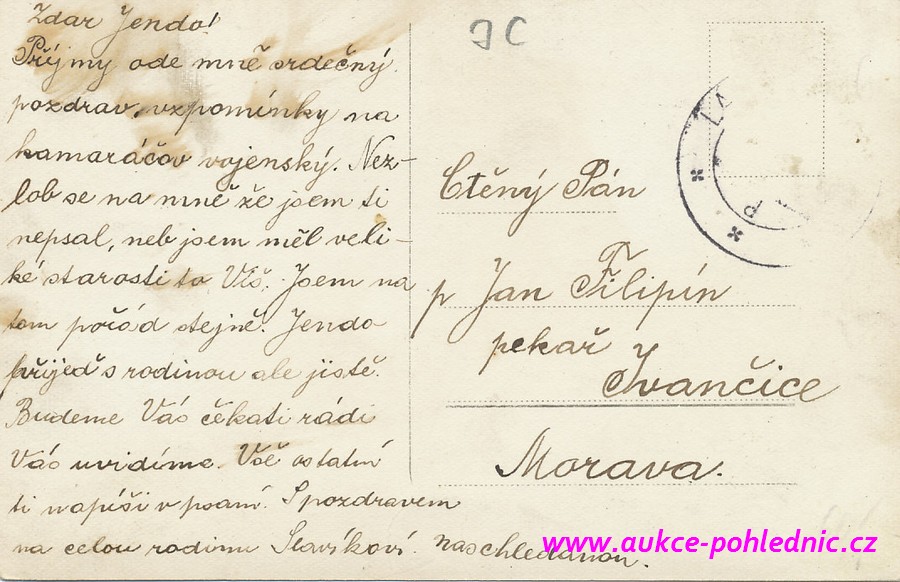 Zdar Jendo!
Příjmy ode mně srdečný
pozdrav, vzpomínky na
kamaráčov vojenský. Nez-
lob se na mně že jsem ti
nepsal, neb jsem měl veli-
ké starosti to Víš. Jsem na
tom pořád stejně. Jendo
přijeď s rodinou ale jistě.
Budeme Vás čekati rádi
Vás uvidíme. Vše ostatní
ti napíši v psaní. S pozdravem
na celou rodinu Slavíkoví. Naschledanou.
JC
Ctěný Pán
p Jan Filipín
pekař
Ivančice
Morava.
www.aukce-pohlednic.cz